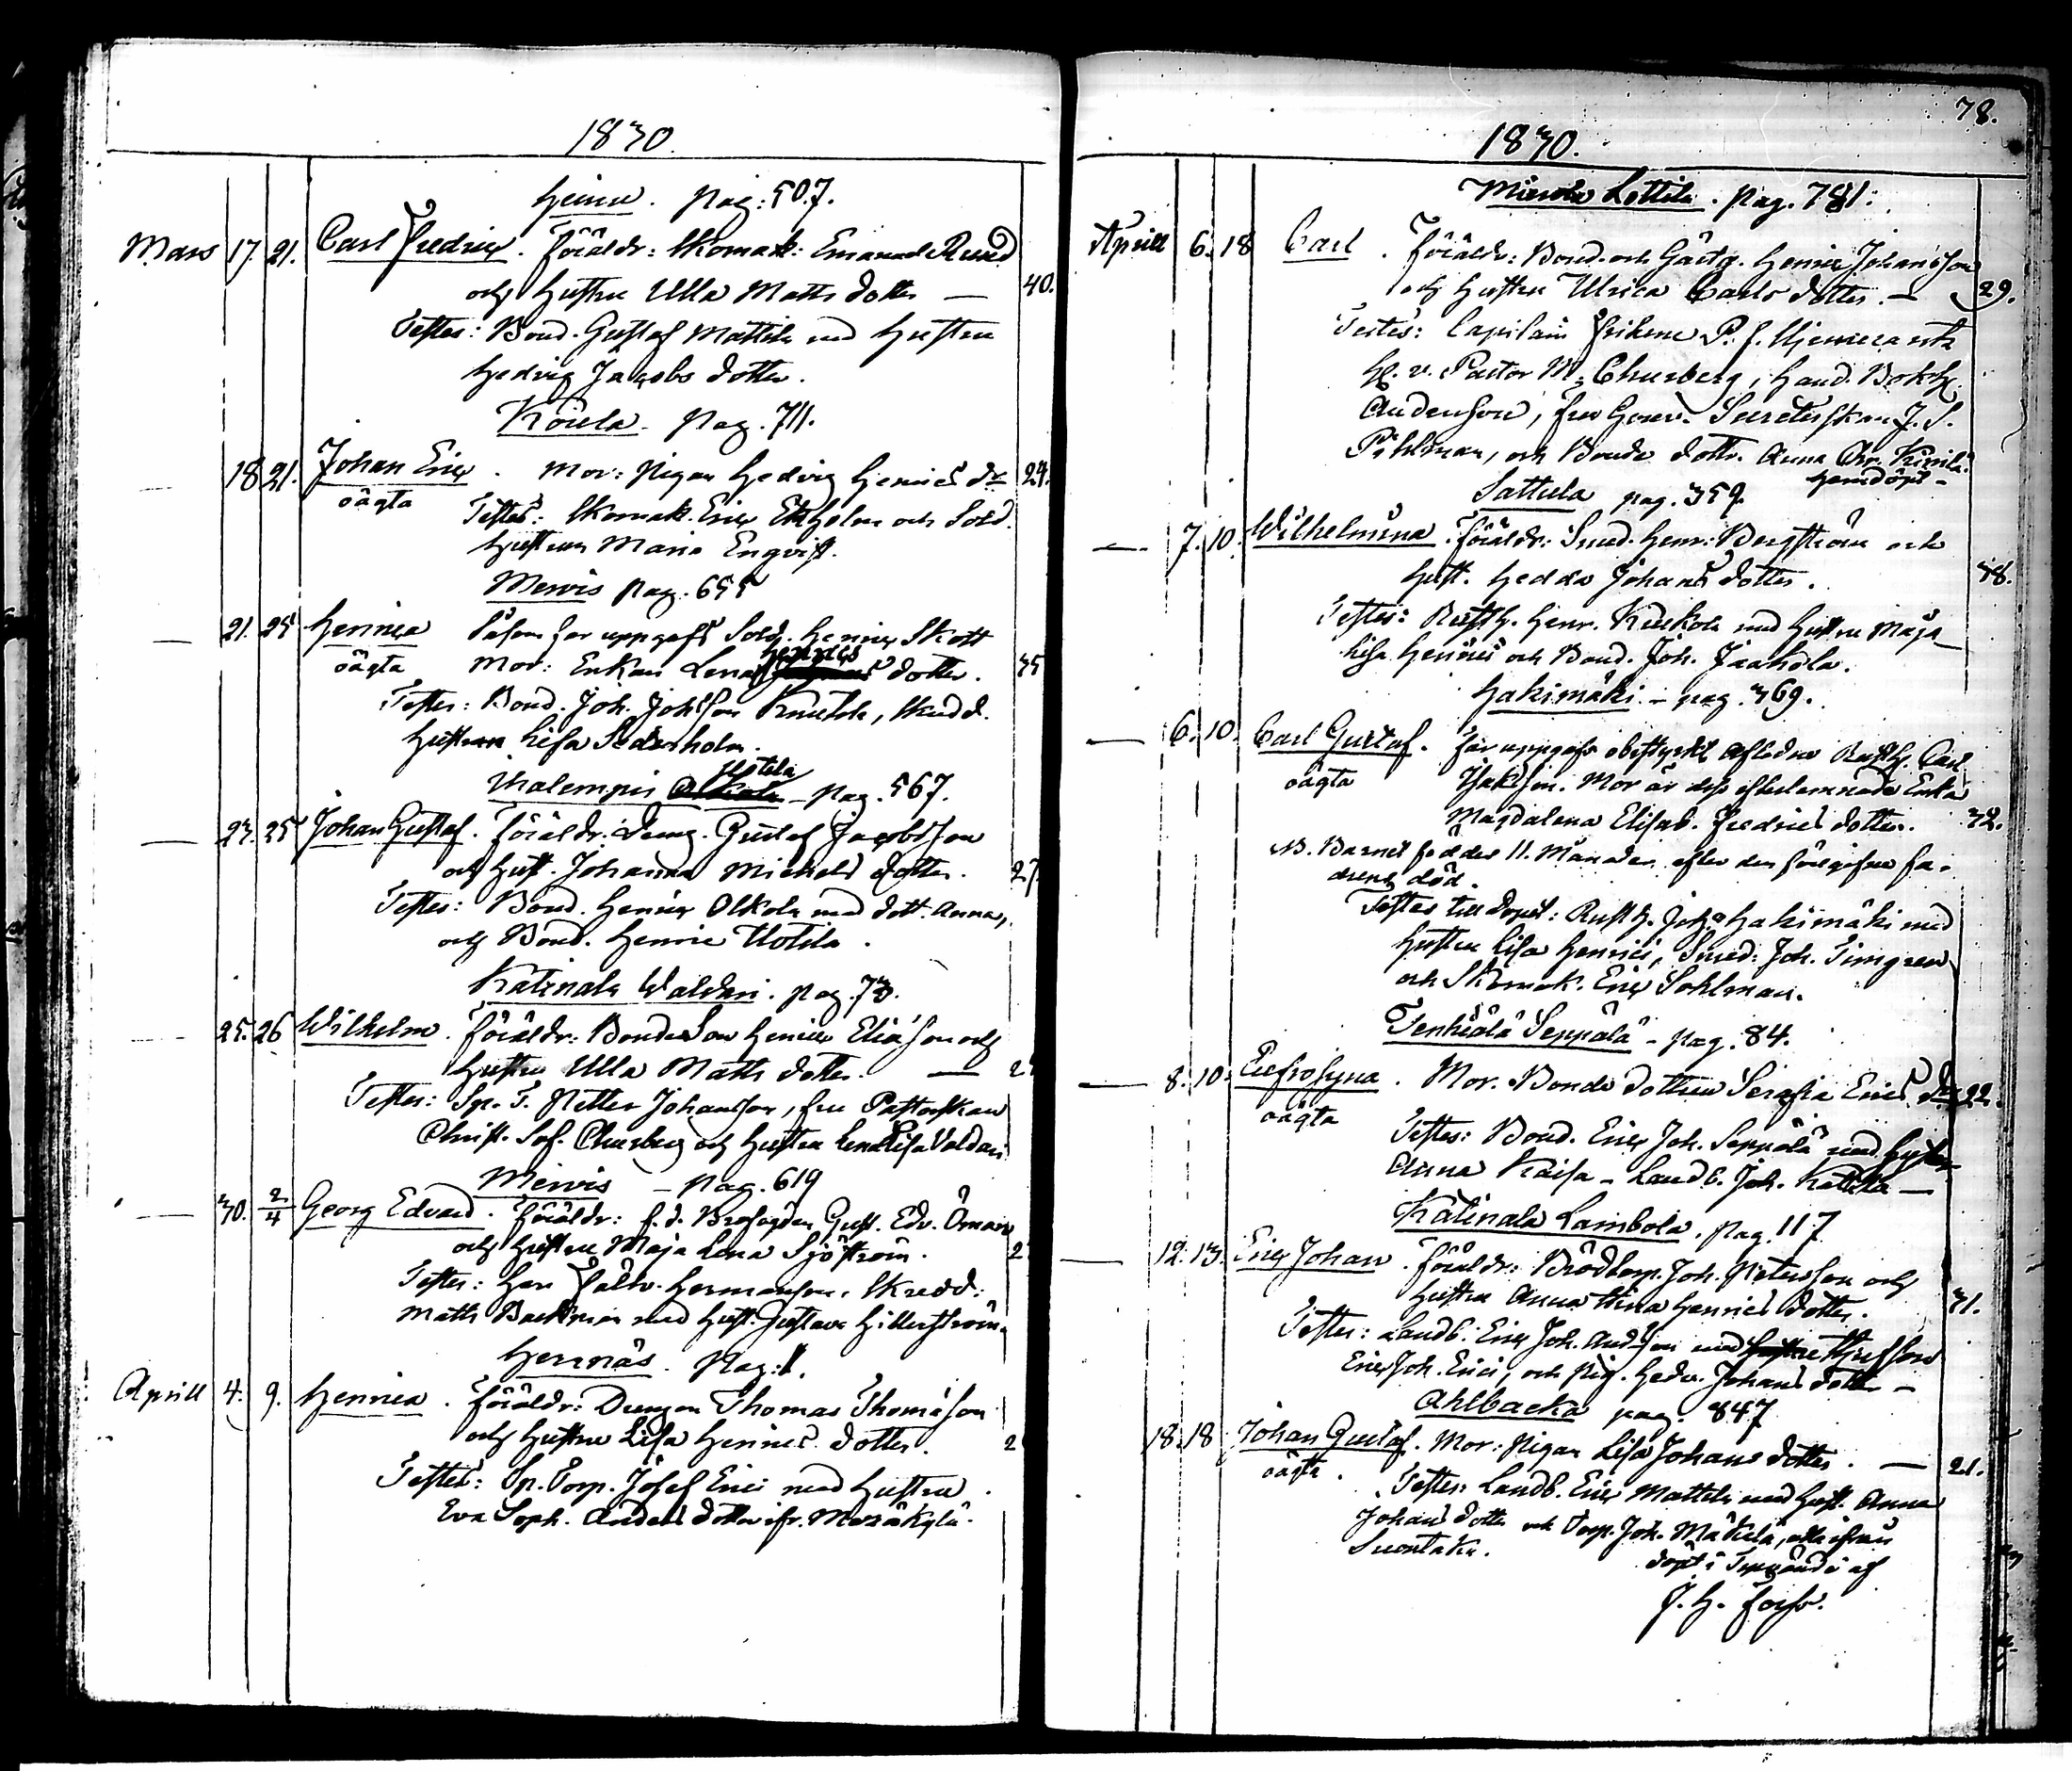 1830.
Heinu. pag: 507.
Mars 17. 21. Carl Fredric. Föräldr: Skomak: Emanuel
och Hustru Ulla Matts dotter — 40.
Testes: Bond. Gustaf Mattila med Hustru
Hedvig Jacobs dotter.
pag. 711.
— 18 21. Johan Eric. Mor: Pigan Hedvig Henrics dr 24.
oägta Testes: Skomak. Eric Ekholm och Sold.
Hustrun Maria Enqvist.
Mervis pag. 655
— 21. 25 Henrica Såsom far uppgafs Sold. Henric Skott
oägta Mor: Enkan Lena Henrics dotter. 35
Testes: Bond. Joh. Johsson Knuutila, Skredd.
Hustrun Lisa Sederholm.
Uotila
pag. 567.
— 23. 25 Johan Gustaf. Föräldr: Dreng. Gustaf Jacobsson
och Hust. Johanna Michels dotter. 27
Testes: Bond. Henric Olkola med dott. Anna,
och Bond. Henric Uotila.
Katinala Waldari. pag. 73.
— 25. 26 Wilhelm. Föräldr: Bondeson Henric Eliasson och
Hustru Ulla Matts dotter. — 2
Testes: Sp. T. Petter Johansson, fru Pastorskan
Christ. Sof. Churberg och Hustru Lena Lisa Valdari
Mervis — pag. 619
— 30. 2/4 Georg Edvard. Föräldr: f.d. Gust. Edv. Öman
och Hustru Maja Lena Sjöström. 2
Testes: Herr Fältv. Hermanson, Skredd:
Matts Backman med Hust. Gustava Hillerström.
Herrnäs. Pag: 1.
Aprill 4. 9. Henrica. Föräldr: Drengen Thomas Thomasson
och Hustru Lisa Henrics dotter. 2
Testes: Sp. Torp. Josef Erici med Hustru
Eva Soph. Anders dotter ifr.
78.
1830.
Mierola Lottila. pag. 781.
Aprill 6. 18 Carl. Föräldr: Bond. och Gästg. Henric Johansson
och Hustru Ulrica Carls dotter. — 29.
Testes: Capitain Friherre
H. v. Pastor M. Churberg, Hand. Bokh.
Andersson, fru Gouv. Secreterskan J. S.
Pihlman, och Bonde dottr. Anna Chr.
hemdöpt —
Sattula pag. 359
— 7. 10. Wilhelmina. Föräldr: Smed. Henr: Bergström och
Hust. Hedda Johans dotter. 38.
Testes: Rusth. Henr. Kuckola med Hustru Maja
Lisa Henrics och Bond. Joh. Jaakola.
Hakimäki — pag. 369.
— 6. 10. Carl Gustaf. far uppgafs obestyrkt aflidne Rusth. Carl
oägta Isaksson. Mor är dess efterlemnade Enka
Magdalena Elisab. Fredrics dotter. 32.
NB. Barnet föddes 11. Månader efter den föregifne fa-
drens död.
Testes till dopet: Rusth. Joh. Hakimäki med
Hustru Lisa Henrici, Smed: Joh. Timgren
och Skomak. Eric Sohlman.
Tenhiälä Seppälä — pag. 84.
— 8. 10. Eufrosyna. Mor. Bonde dottren Serafia Erics dr 22.
oägta
Testes: Bond. Eric Joh. Seppälä med Hustru
Anna Kaisa — Landb. Joh. —
Katinala Lambola. pag. 117
— 12. 13. Eric Johan. Föräldr: Joh. Petersson och
Hustru Anna Stina Henrics dotter. 31.
Testes: Landb. Eric Joh. Andsson med
Eric Joh. Erici, och Pig. Hedv. Johans dotter —
Ahlbacka pag. 847
18. 18 Johan Gustaf. Mor: Pigan Lisa Johans dotter. — 21.
oägta. Testes: Landb. Eric Mattila med Hust. Anna
Johans dotter och Torp. Joh. Mäkelä, alla ifrån
Suontaka.
döpt i af
J. H.